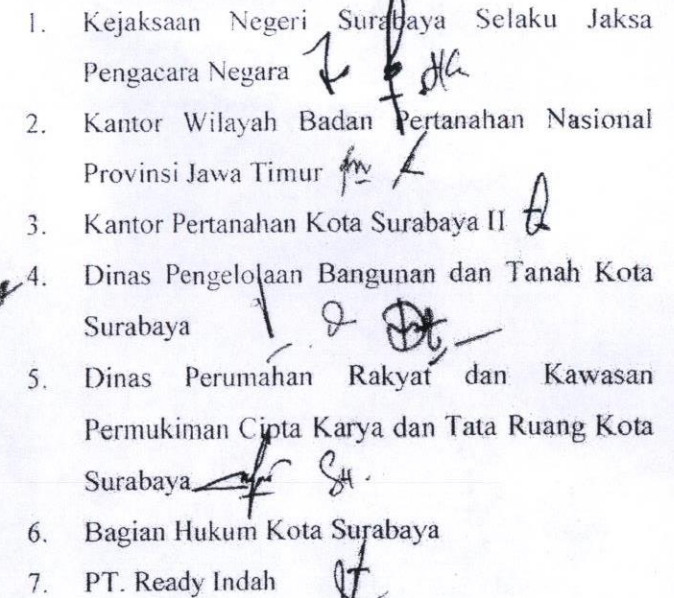 1. Kejaksaan Negeri Surabaya Selaku Jaksa
Pengacara Negara
2. Kantor Wilayah Badan Pertanahan Nasional
Provinsi Jawa Timur
3. Kantor Pertanahan Kota Surabaya II
4. Dinas Pengelolaan Bangunan dan Tanah Kota
Surabaya
5. Dinas Perumahan Rakyat dan Kawasan
Permukiman Cipta Karya dan Tata Ruang Kota
Surabaya
6. Bagian Hukum Kota Surabaya
7. PT. Ready Indah